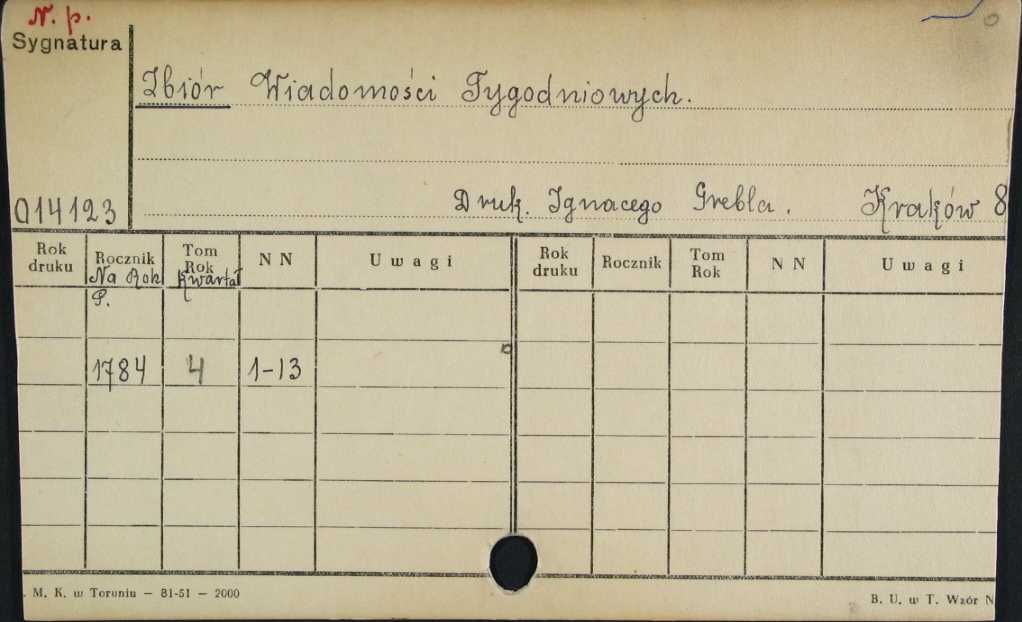 N. p.
Sygnatura
Zbiór Wiadomości Tygodniowych.
014123
Druk. Ignacego Grebla. Kraków 8
Rok druku Rocznik Tom Rok N N Uwagi Rok druku Rocznik Tom Rok N N Uwagi
Na Rok Kwartał
P.
1784 4 1-13
. M. K. w Toruniu — 81-51 — 2000
B. U. w T. Wzór N